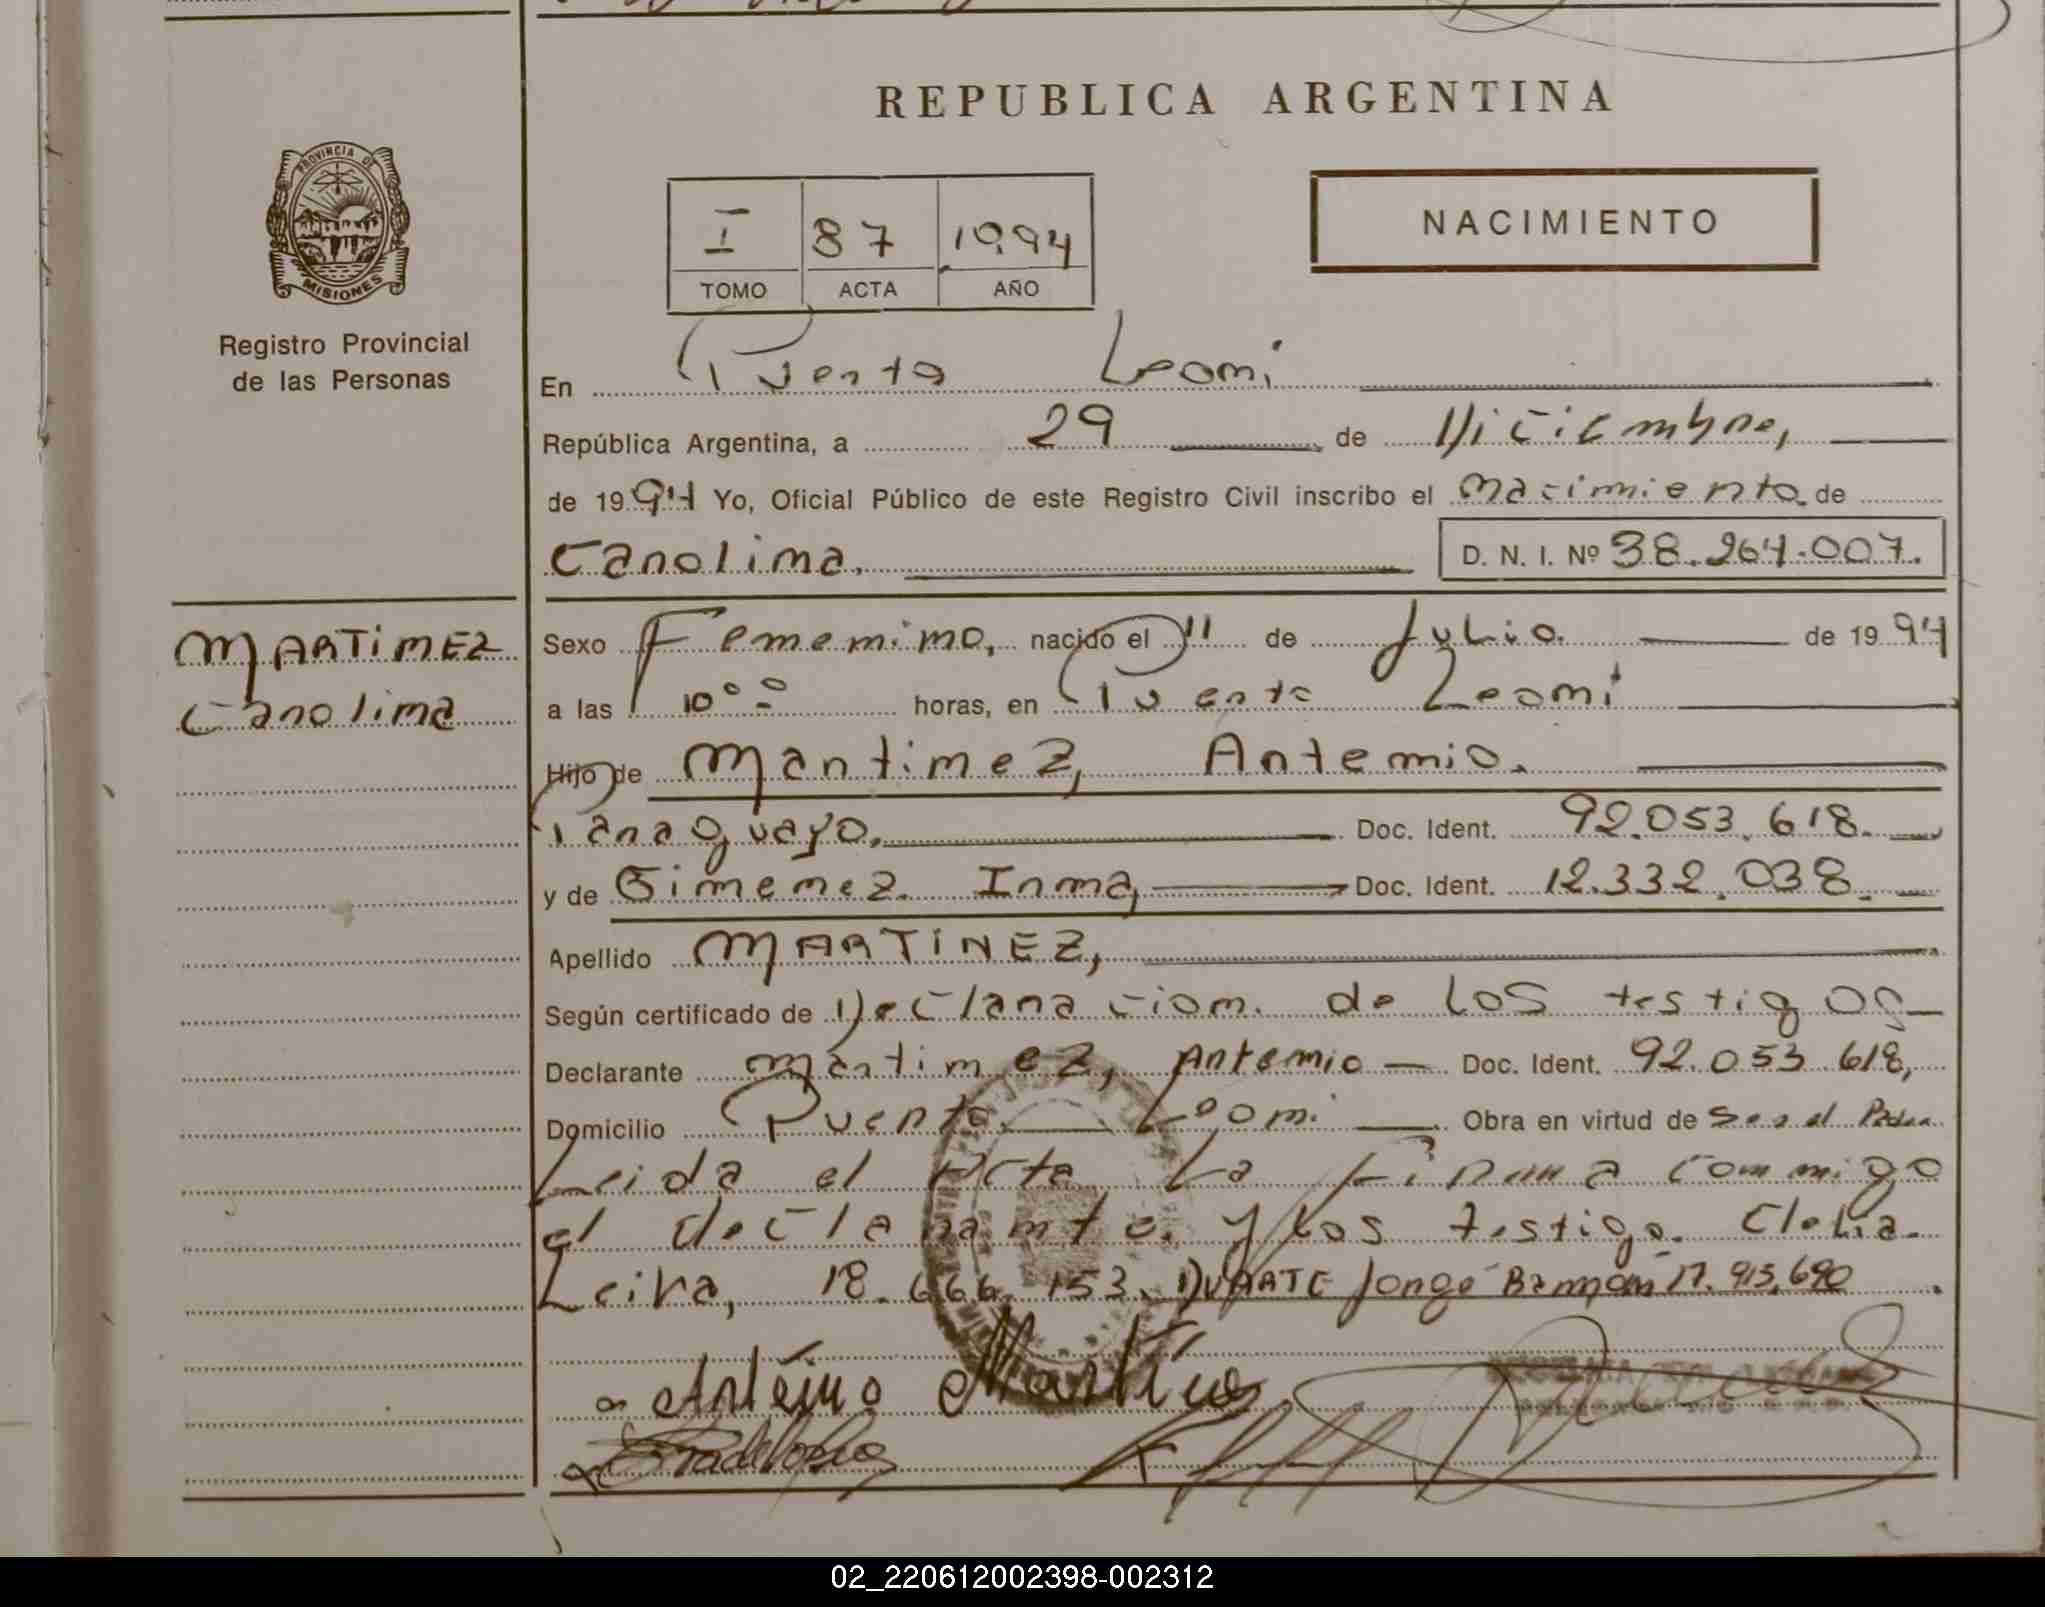 REPUBLICA ARGENTINA
PROVINCIA DE
MISIONES
Registro Provincial
de las Personas
NACIMIENTO
I 87 1994
TOMO ACTA AÑO
En Puerto Leoni
República Argentina, a 29 de Diciembre,
de 1994 Yo, Oficial Público de este Registro Civil inscribo el nacimiento de
Carolina. D. N. I. Nº 38.264.007.
MARTINEZ
Carolina
Sexo Femenino, nacido el 11 de Julio de 1994
a las 10⁰⁰ horas, en Puerto Leoni
Hijo de Martinez, Antemio.
Paraguayo, Doc. Ident. 92.053.618.
y de Gimenez Irma, Doc. Ident. 12.332.038.
Apellido MARTINEZ,
Según certificado de Declaracion de los testigos
Declarante Martinez, Antemio Doc. Ident. 92.053.618,
Domicilio Puerto Leoni Obra en virtud de Ser el Padre
Leida el Acta La Firma conmigo
el declarante y los testigo. Clelia
Leiva, 18.666.153. DUARTE Jorge Ramon 17.915.690
02_220612002398-002312